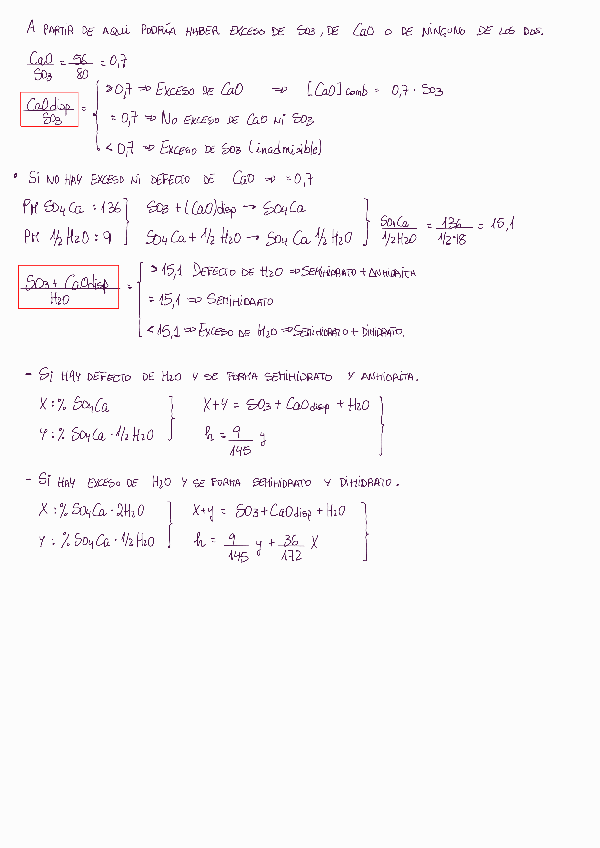 A PARTIR DE AQUI PODRÍA HABER EXCESO DE SO3, DE CaO O DE NINGUNO DE LOS DOS.
CaO/SO3 = 56/80 = 0,7
CaO disp/SO3 =
>0,7 => EXCESO DE CaO => [CaO] comb = 0,7 · SO3
= 0,7 => NO EXCESO DE CaO NI SO3
< 0,7 => EXCESO DE SO3 (inadmisible)
• SI NO HAY EXCESO NI DEFECTO DE CaO => = 0,7
PM SO4Ca : 136 SO3 + (CaO)disp → SO4Ca
PM 1/2 H2O : 9 SO4Ca + 1/2 H2O → SO4Ca 1/2 H2O
SO4Ca/1/2H2O = 136/1/2·18 = 15,1
SO3 + CaO disp/H2O =
> 15,1 DEFECTO DE H2O => SEMIHIDRATO + ANHIDRITA
= 15,1 => SEMIHIDRATO
< 15,1 => EXCESO DE H2O => SEMIHIDRATO + DIHIDRATO.
- SI HAY DEFECTO DE H2O Y SE FORMA SEMIHIDRATO Y ANHIDRITA.
X : % SO4Ca X+Y = SO3 + CaO disp + H2O
Y : % SO4Ca · 1/2 H2O h = 9/145 y
- SI HAY EXCESO DE H2O Y SE FORMA SEMIHIDRATO Y DIHIDRATO.
X : % SO4Ca · 2H2O X+y = SO3 + CaO disp + H2O
Y : % SO4Ca · 1/2 H2O h = 9/145 y + 36/172 X